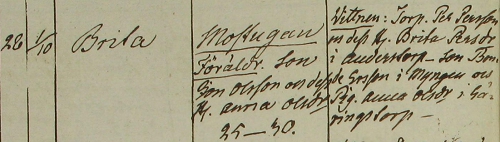 28 1/10 Brita Mostugan
Föräldr. Jon
Jon Olsson och dess
H. Anna Olsdr
25–30.
Vittnen: Torp. Per Persson
och dess H. Brita Persdr
i Anderstorp – Jon Bon-
de Ersson i Myngen och
Pig. Anna Olsdr i Gä-
ringstorp –